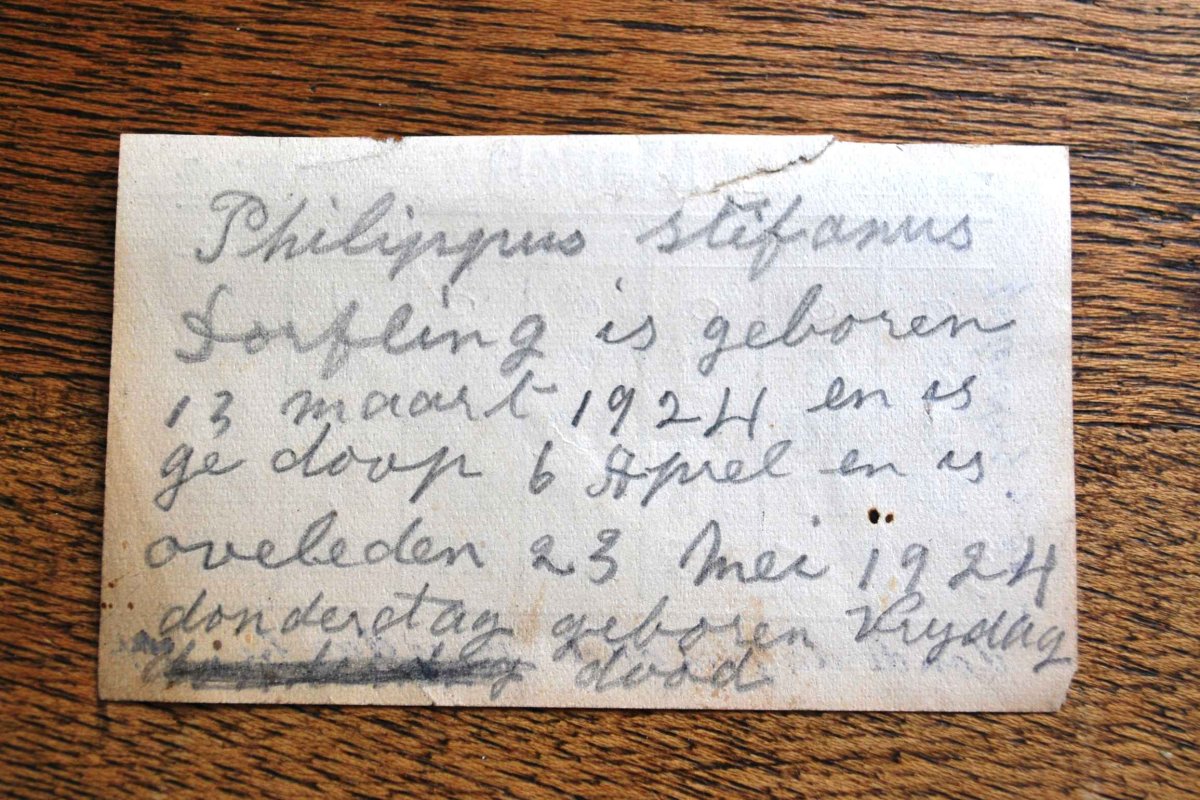 Philippus stefanus
Dorfling is geboren
13 maart 1924 en is
ge doop 6 Aprel en is
oveleden 23 Mei 1924
donderdag geboren Vrydag
dood